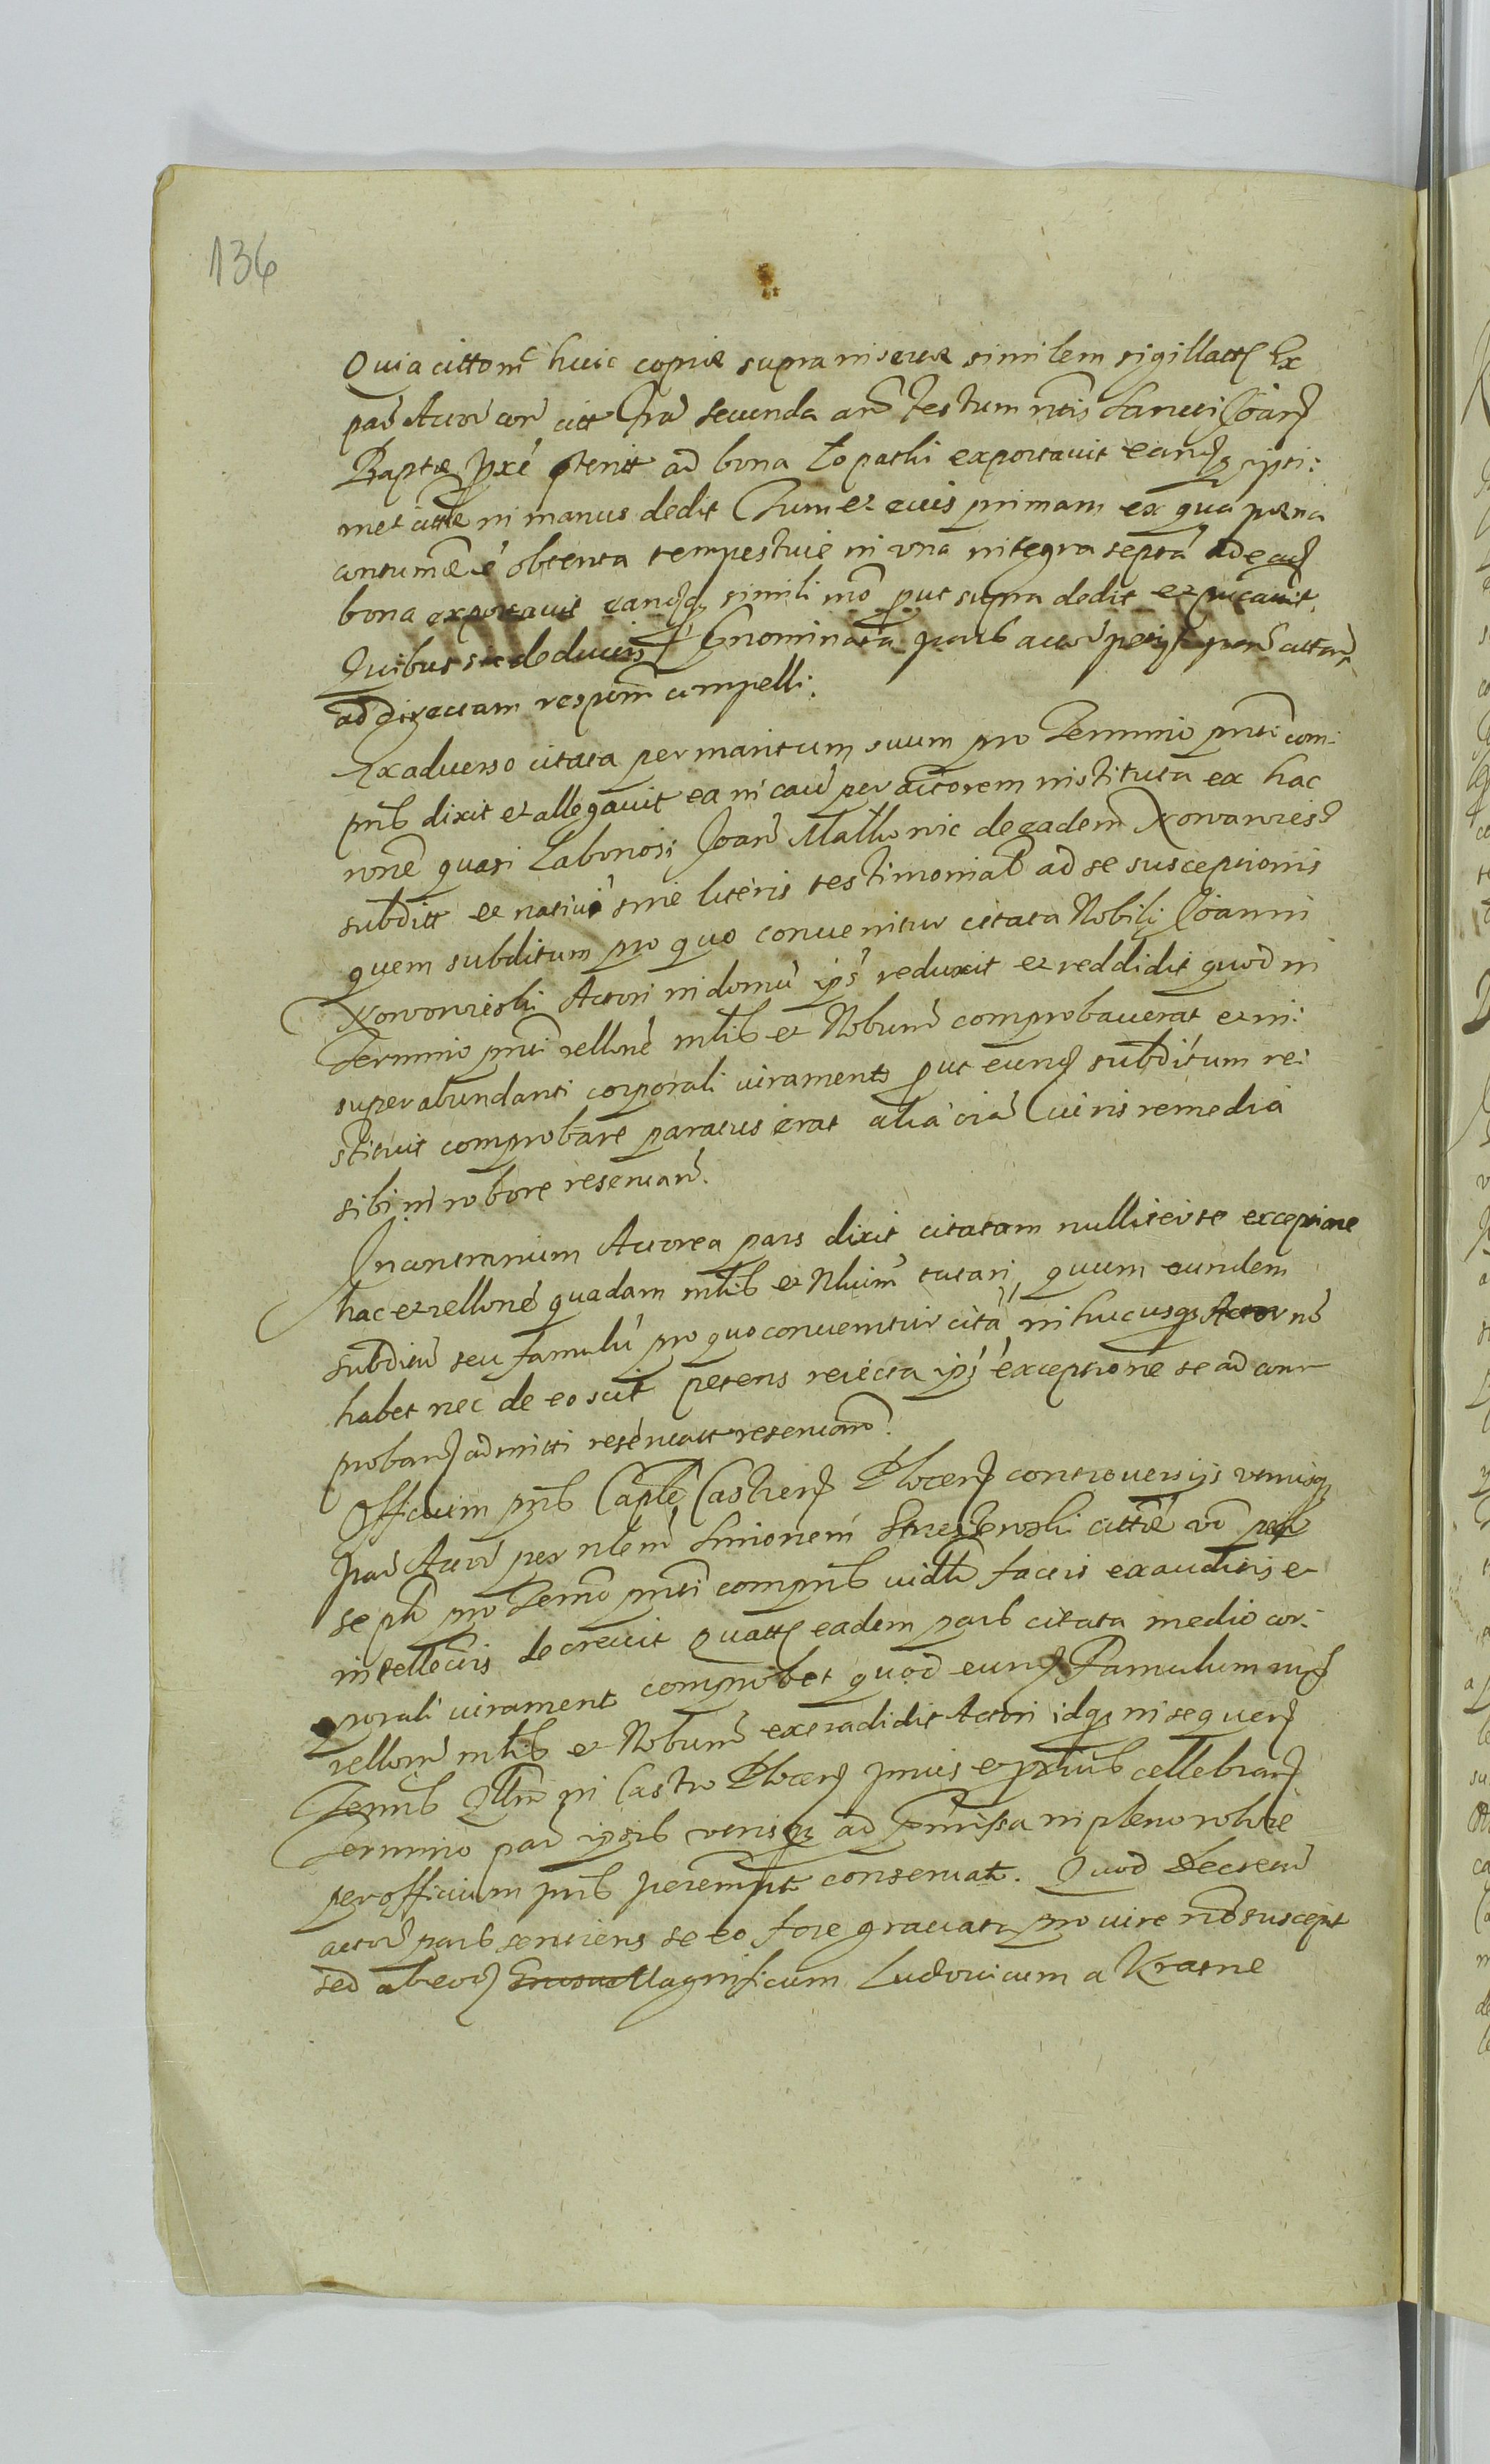 136
Quia cittom̃ huic copiæ supra insertæ similem sigillatt Ex
par Actor cor citt fra secunda an̄ festum n̄tis Sancti Joan̄
Baptæ pxe pterit ad bona Lopatki exportavit eandq ipsi:
met cittæ in manus dedit Tum et eius primam ex qua pæna
contumæ ē obtenta tempestive in una integra septā ad ead
bona exportavit eandq simili mō put supra dedit et pucavit
Quibus sic deductis pnominata pars actor petyt par cittam
ad directam respom̄ compelli.
Ex adverso citata per maritum suum pro Termino pnti com:
pns dixit et allegavit ea in caū per actorem instituta ex hac
rone quasi Laboriosi Joan Malkowic de eadem Xowowies
subditt et nativi sine literis testimonial ad se susceptionis
quem subditum pro quo convenitur citata Nobili Joanni
Xowowieski Actori in domū ips reduxit et reddidit quod in
Termino pnti rellone mlis et Nobium comprobaverat et in:
superabundanti corporali iurament put eund subditum re:
stituit comprobare paratus erat alia oiā iuris remedia
sibi in robore reservan.
In contrarium Actorea pars dixit citatam nulliter se exceptione
hac et rellone quadam mlis et Nbium tutari, quum eundem
subditū seu famulū pro quo convenitur citā in hucusq Actor no
habet nec de eo scit petens reiecta ips exceptione se ad com
proband admitti reservatt reservan.
Officium pns Caple Castren Plocen controversijs utriusq
par Actor per nlem Simonem cittæ vō
se pte pro Termo pnti compns vidlt factis exauditis et
intellectis decrevit Quatt eadem pars citata medio cor:
porali iurament comprobet quod eund Famulum
rellone mlis et Nobium extradidit Actori idq in sequen
Termis Qllm in Castro Plocen pmis et pxius cellebran
Termino par ipsis utrisq ad pmissa in pleno robore
per officium pns perempt conservat. Quod Decretū
actor pars sentiens se eo fore gravata pro iure no suscept
sed ab eod Magnificum Ludovicum a Krasne